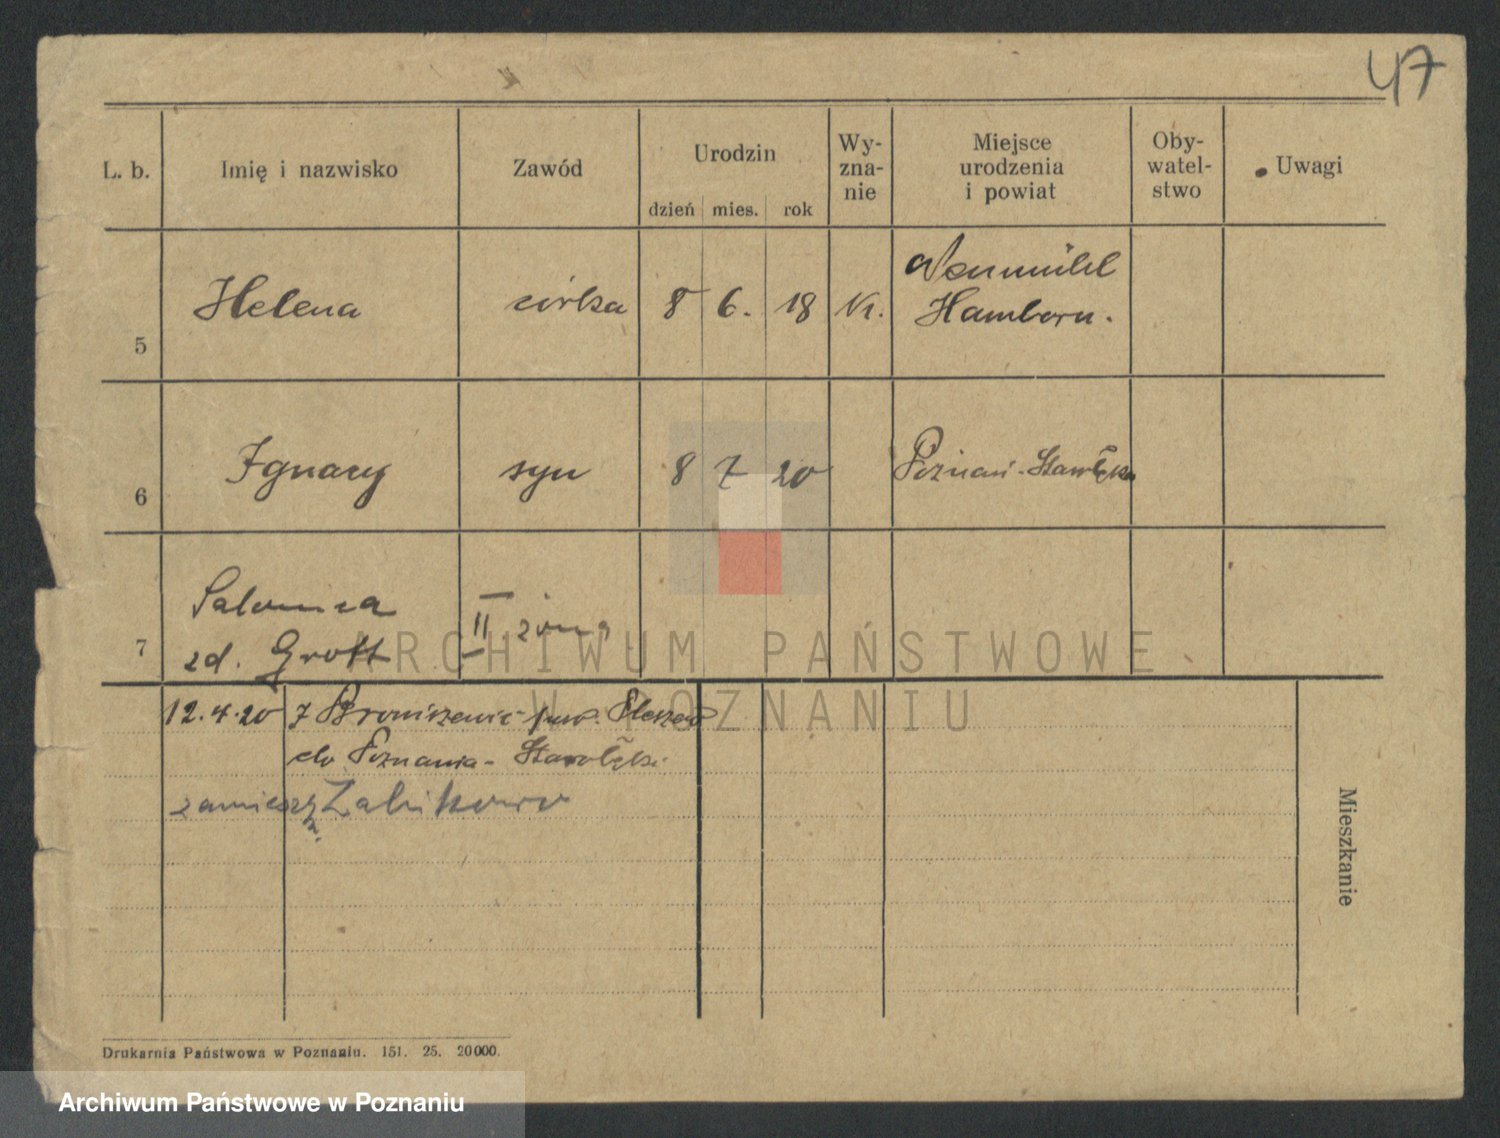 47
L. b. Imię i nazwisko Zawód Urodzin Wy-zna-nie Miejsce urodzenia i powiat Oby-watel-stwo Uwagi
dzień mies. rok
5 Helena córka 8 6. 18 kt. Neumühl
Hamborn.
6 Ignacy syn 8 7 20 Poznań-Starołęka
7 Salomea II żona
zd. Grott
12.4.20 z Broniszewic pow. Pleszew
do Poznania - Starołęki
zamieszk. Żabikowo
Mieszkanie
Drukarnia Państwowa w Poznaniu. 151. 25. 20000.
ARCHIWUM PAŃSTWOWE
W POZNANIU
Archiwum Państwowe w Poznaniu